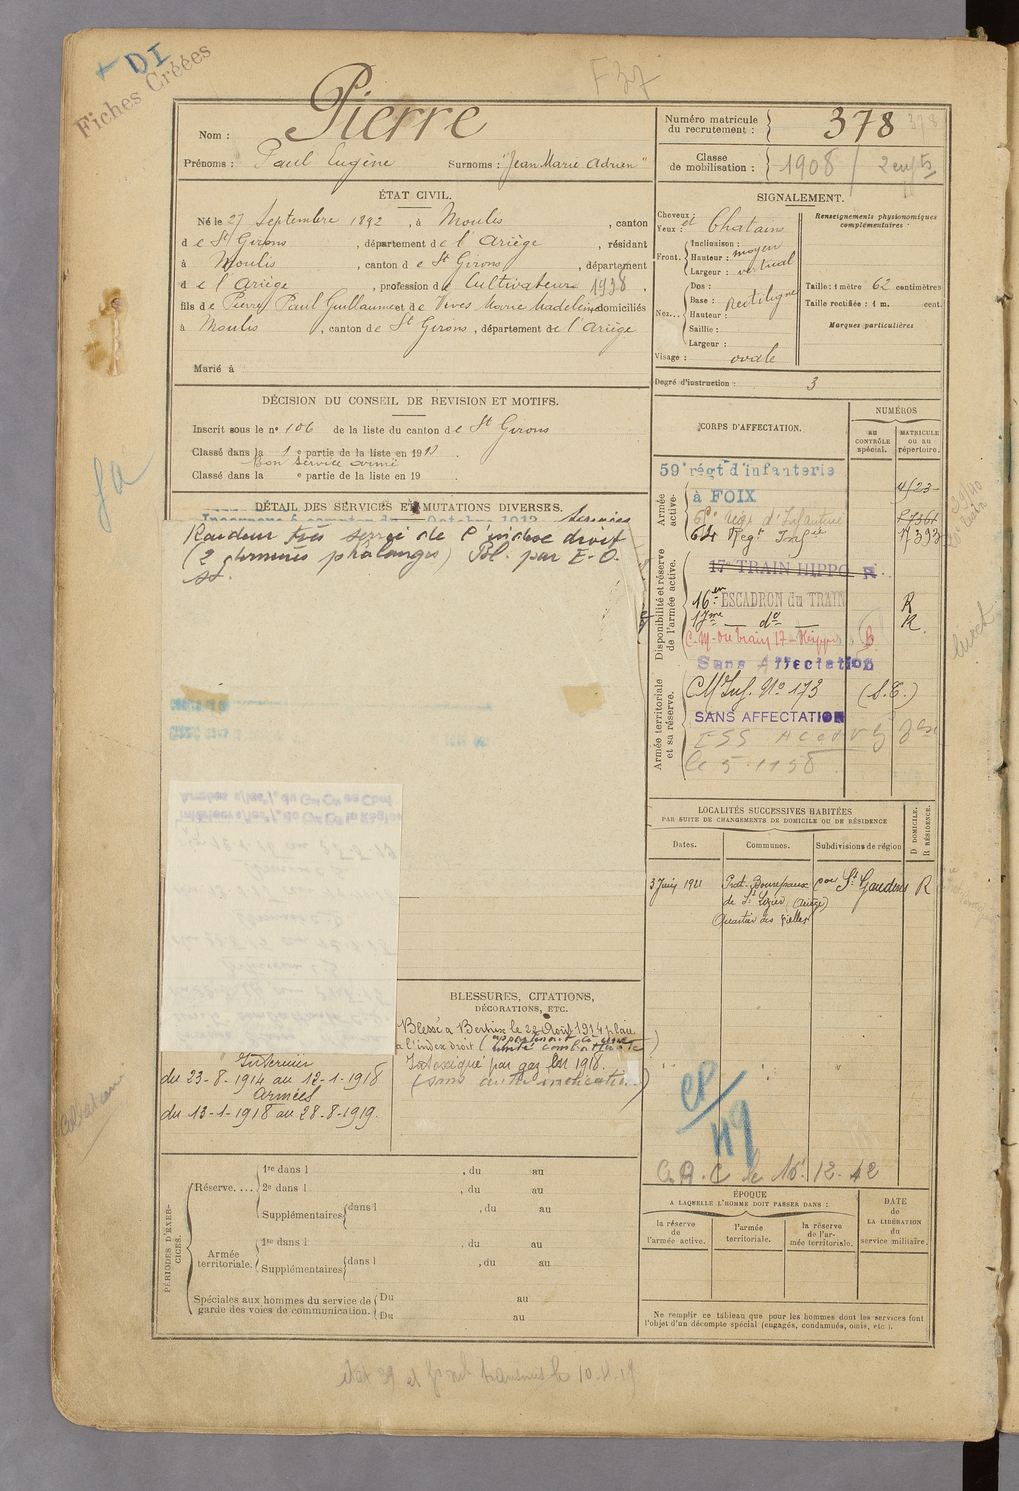 + DI
Fiches Créées
F 37
Nom : Pierre
Prénoms : Paul Eugène Surnoms : "Jean Marie Adrien"
Numéro matricule du recrutement : 378
Classe de mobilisation : 1908 /
ÉTAT CIVIL.
Né le 27 Septembre 1892, à Moulis, canton
de St Girons, département de l'Ariège, résidant
à Moulis, canton de St Girons, département
de l'Ariège, profession de Cultivateur 1938.
fils de Pierre Paul Guillaume et de Vives Marie Madeleine, domiciliés
à Moulis, canton de St Girons, département de l'Ariège
Marié à
SIGNALEMENT.
Cheveux : et Chatains
Yeux :
Front. Inclinaison :
Hauteur : moyen
Largeur : vertical
Nez... Dos :
Base : rectiligne
Hauteur :
Saillie :
Largeur :
Visage : ovale
Renseignements physionomiques
complémentaires :
Taille : 1 mètre 62 centimètres
Taille rectifiée : 1 m. cent.
Marques particulières
Degré d'instruction : 3
DÉCISION DU CONSEIL DE REVISION ET MOTIFS.
Inscrit sous le n° 106 de la liste du canton de St Girons
Classé dans la 1 e partie de la liste en 191
Bon service armé
Classé dans la e partie de la liste en 19 .
DÉTAIL DES SERVICES ET MUTATIONS DIVERSES.
Octobre 1913 Services
Raideur très serrée de l'index droit
(2 dernières phalanges)
CORPS D'AFFECTATION.
NUMÉROS
AU CONTRÔLE spécial.
MATRICULE ou au répertoire.
Armée active.
59e régt d'infanterie
à FOIX
4/23
Régt d'Infanterie
64 Régt Infie
7393
Disponibilité et réserve de l'armée active.
17e TRAIN HIPPO R
16 en ESCADRON du TRAIN R
17me — do — R.
C. M. du train 17 - Hippo B
Armée territoriale et sa réserve.
Sans Affectation
CM Inf. No 173 (S.E.)
SANS AFFECTATION
livret
LOCALITÉS SUCCESSIVES HABITÉES
PAR SUITE DE CHANGEMENTS DE DOMICILE OU DE RÉSIDENCE
D. DOMICILE.
R. RÉSIDENCE.
Dates.
Communes.
Subdivisions de région
3 Juin 1921 Prat-Bonrepaux St Gaudens R
de St Lizier (Ariège)
Quartier des
BLESSURES, CITATIONS,
DÉCORATIONS, ETC.
Blessé à Bertrix le 22 Août 1914 plaie
à l'index droit (appartenait à une
unité combattante)
Intoxiqué par gaz en 1918.
(sans autre indication)
Intérieur
du 23-8-1914 au 12-1-1918
Armées
du 13-1-1918 au 28-8-1919.
CP/49
C.A.C le 16.12.42
PÉRIODES D'EXERCICES.
Réserve.... 1re dans l , du au
2e dans l , du au
Supplémentaires dans l , du au
Armée territoriale. 1re dans l , du au
Supplémentaires dans l , du au
Spéciales aux hommes du service de garde des voies de communication. Du au
Du au
ÉPOQUE
A LAQUELLE L'HOMME DOIT PASSER DANS :
la réserve de l'armée active.
l'armée territoriale.
la réserve de l'armée territoriale.
DATE de LA LIBÉRATION du service militaire.
Ne remplir ce tableau que pour les hommes dont les services font
l'objet d'un décompte spécial (engagés, condamnés, omis, etc.).